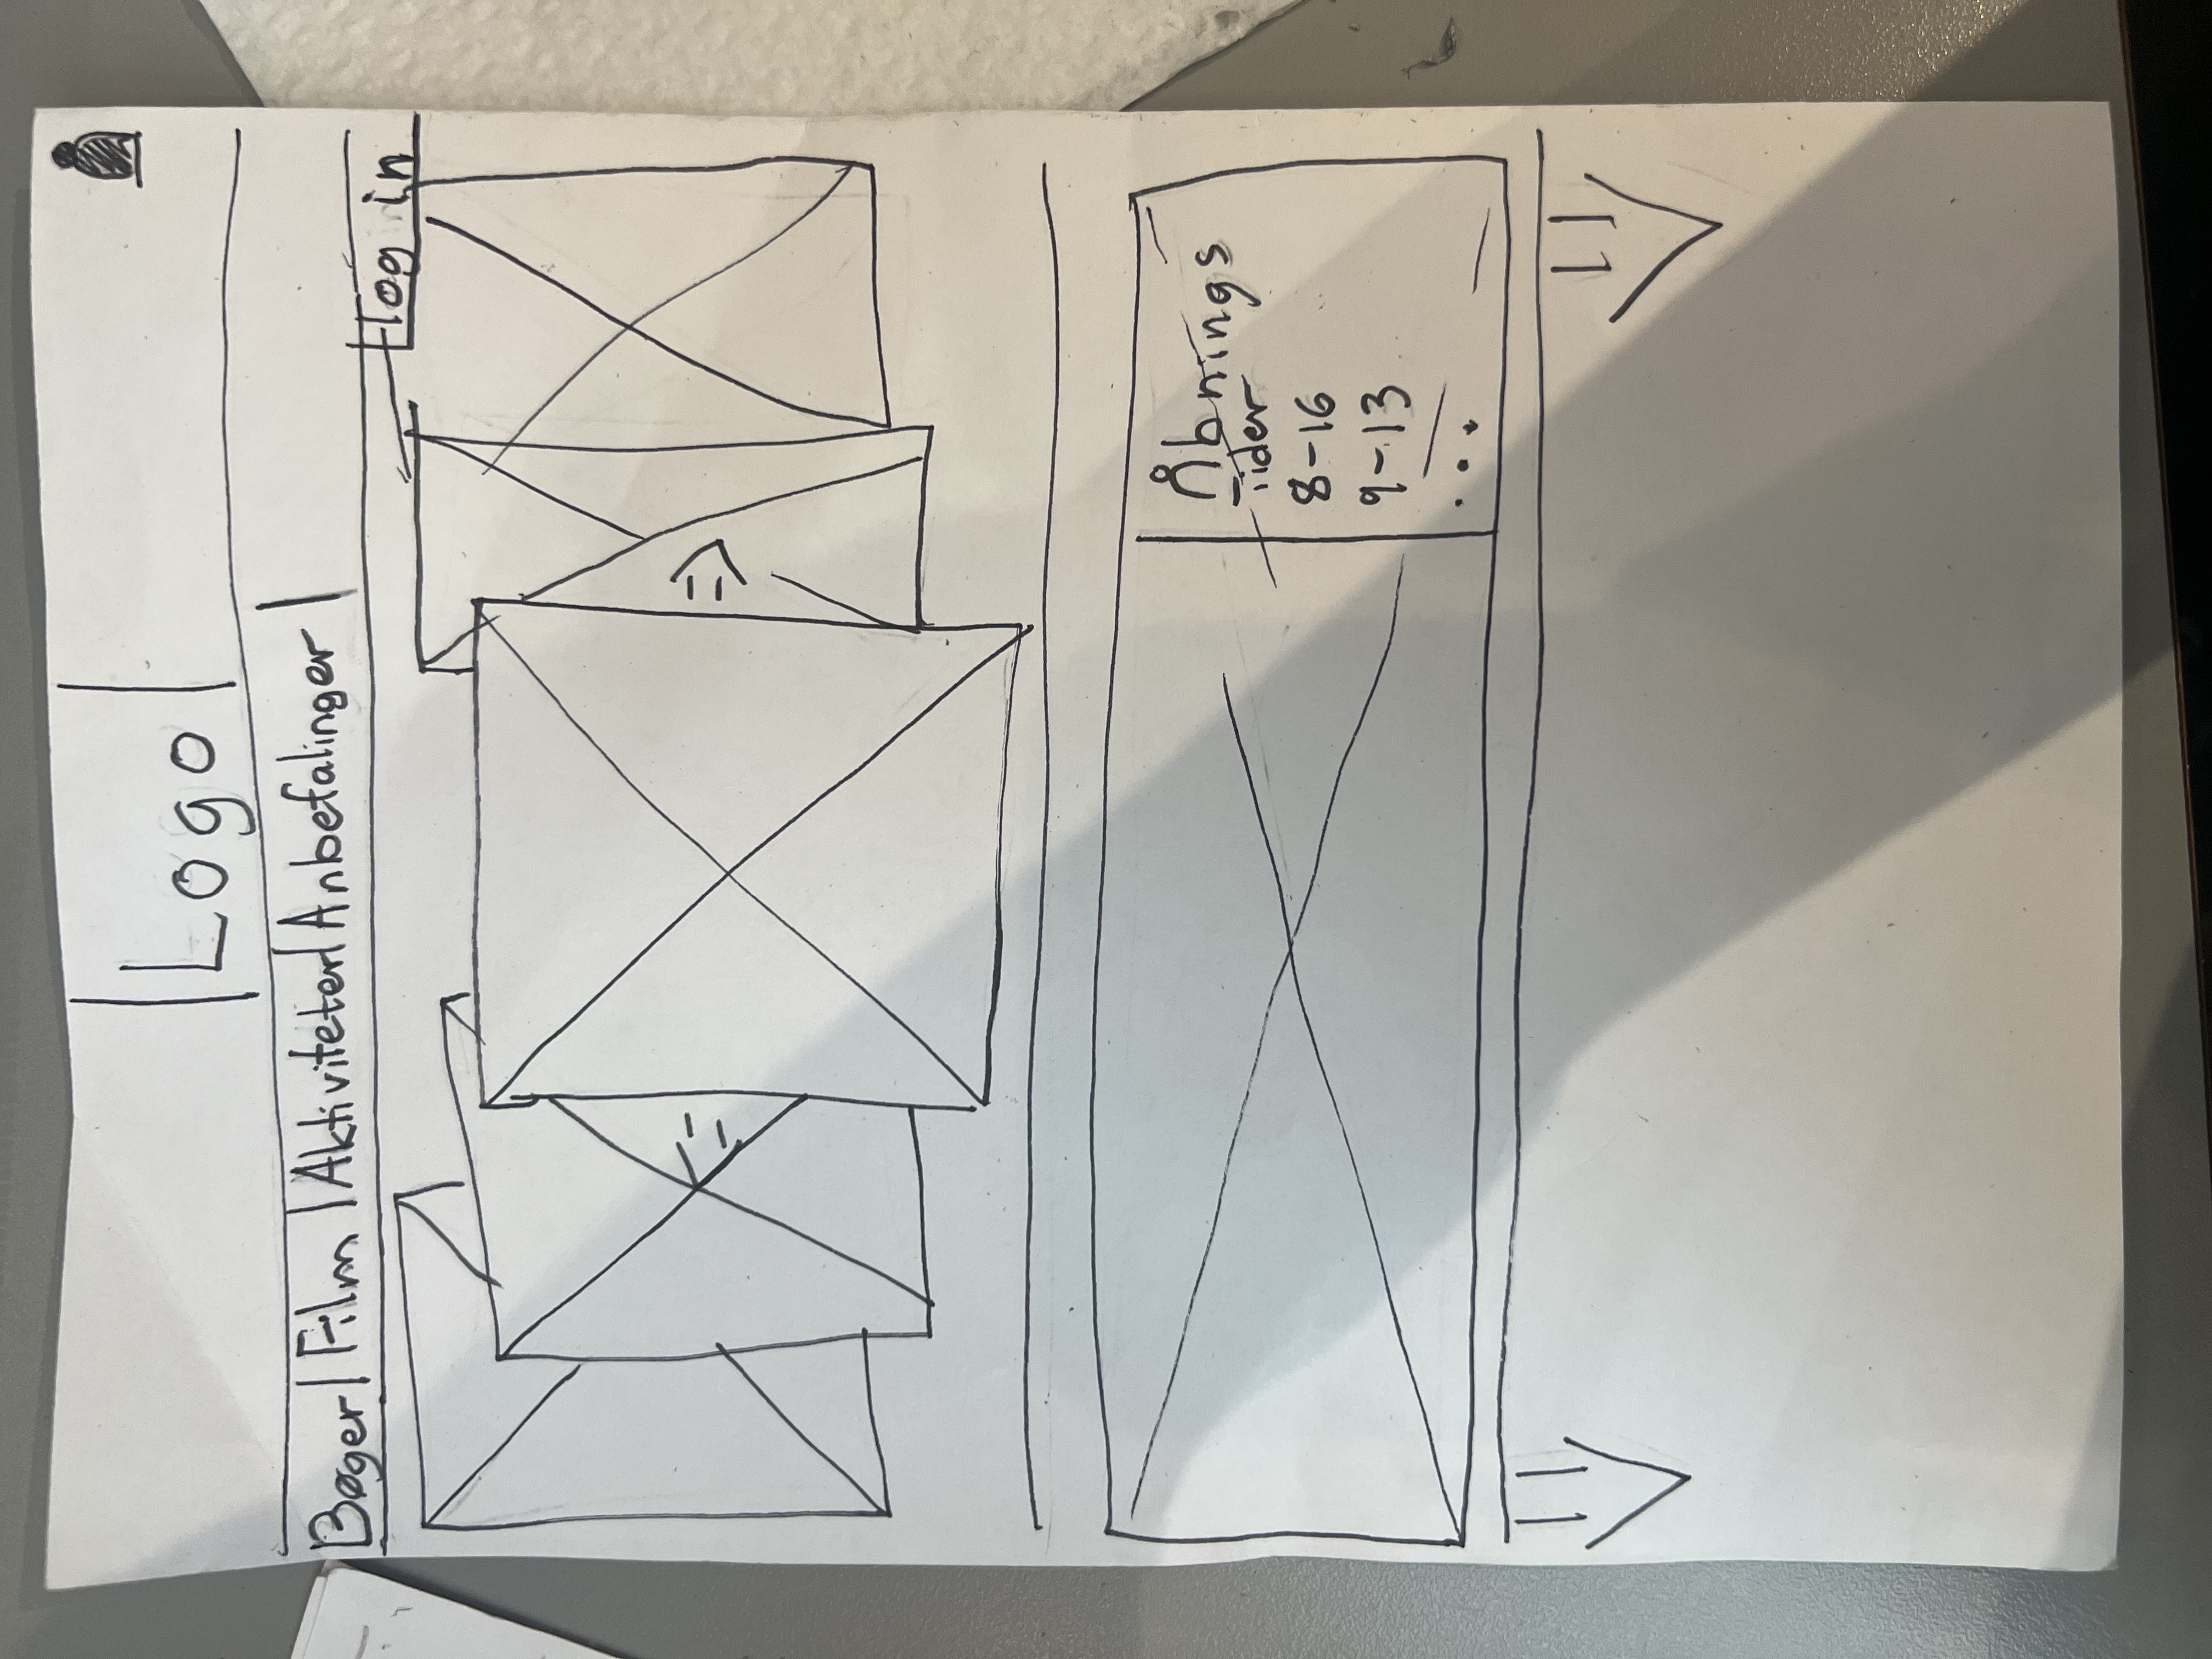 Logo
Bøger | Film | Aktiviteter | Anbefalinger |
log in
Åbnings
Tider
8-16
9-13
...